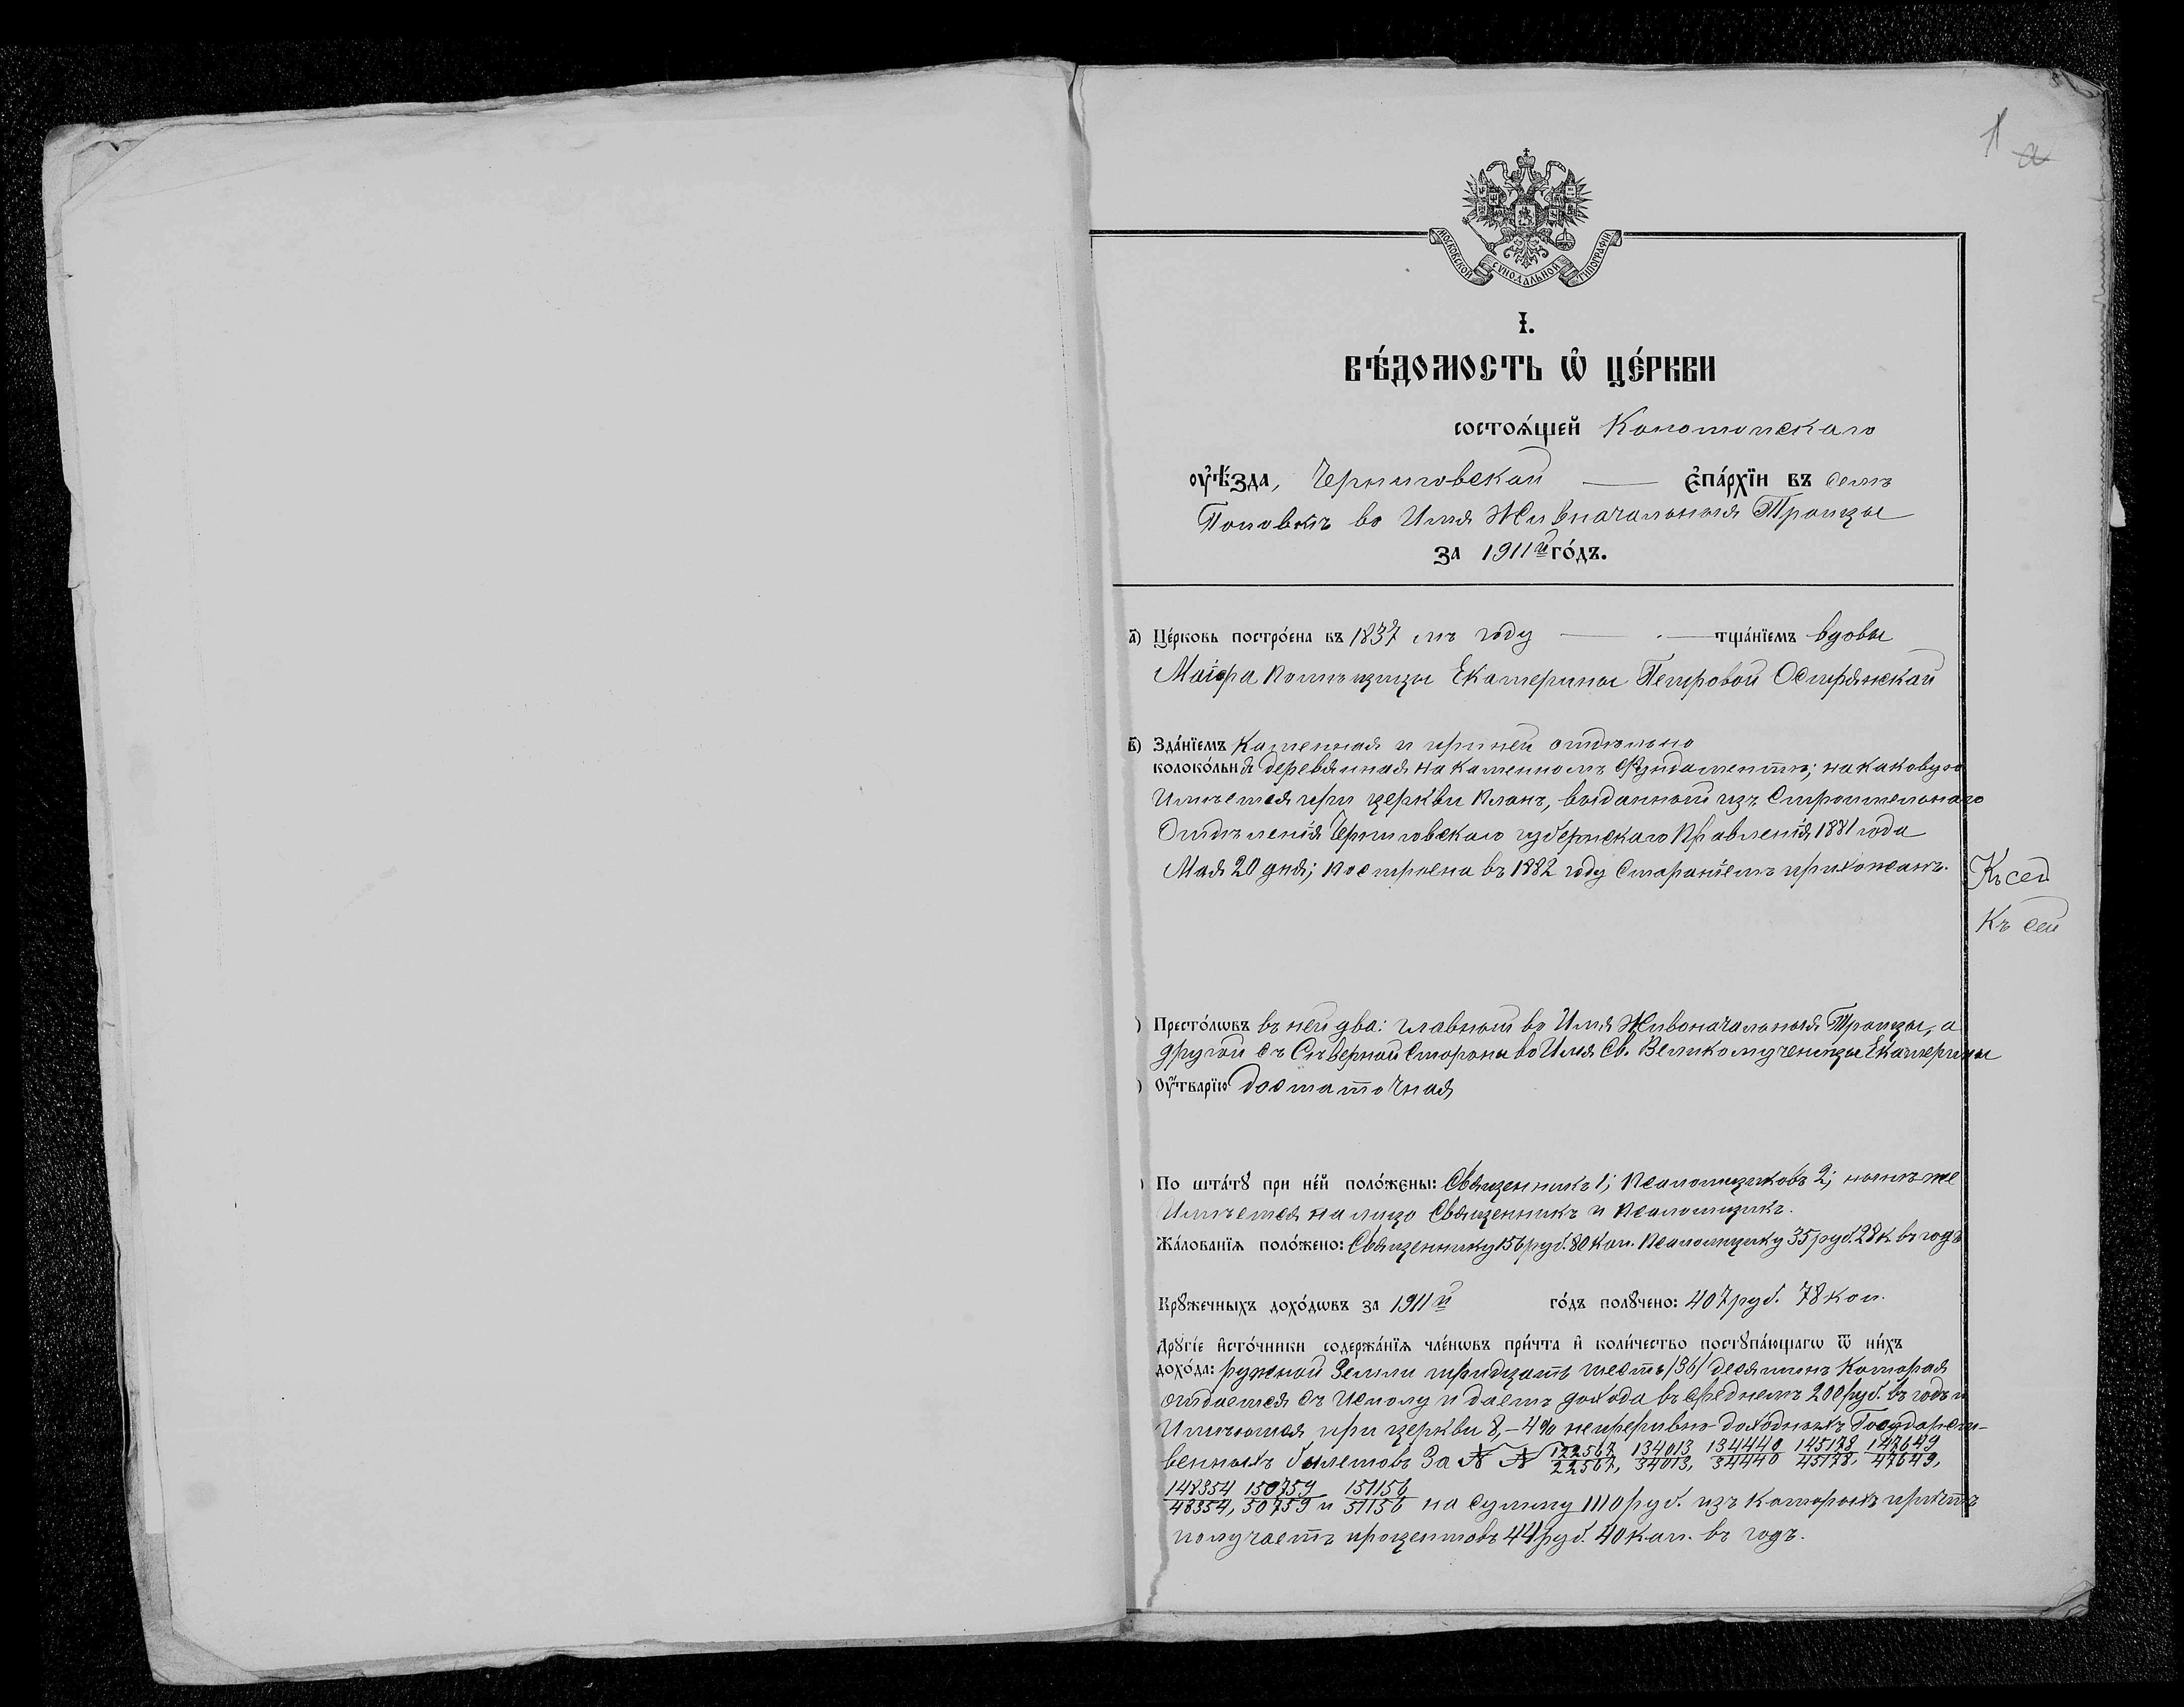 1 а
МОСКОВСКОЙ СѴНОДАЛЬНОЙ ТИПОГРАФІИ
І.
ВѢ́ДОМОСТЬ Ѡ҆ ЦЕ́РКВИ
состоѧ́щей Конотопскаго
ᲂу҆ѣ́зда, Черниговской — є҆па́рхїи въ селѣ
Поповкѣ во Имя Живначальныя Троицы
за 1911й го́дъ.
а҃) Це́рковь постро́ена въ 1837 мъ году — тща́нїемъ вдовы
Маіора помѣщицы Екатерины Петровой Острянской
в҃) Зда́нїемъ каменная и при ней отдѣльно
колоко́льнѧ деревянная на каменномъ фундаментѣ; на каковую
Имѣется при церкви планъ, выданный изъ Строительнаго
Отдѣленія Черниговскаго губернскаго Правленія 1881 года
Мая 20 дня; построена въ 1882 году Стараніемъ прихожанъ.
Къ сей
Къ сей
) Престо́лѡвъ въ ней два: главный во Имя Живоначальныя Троицы, а
другой съ Сѣверной Стороны во Имя Св. Великомученицы Екатерины
) Оу҆́тварїю достаточная
) По шта́тꙋ при не́й поло́жєны: Священникъ 1; псаломщиковъ 2; нынѣ же
Имѣется на лицо Священникъ и псаломщикъ.
Жа́лованїѧ поло́жено: Священнику 156 руб. 80 коп. псаломщику 35 руб. 28 к. въ годъ
Крꙋжечныхъ дохо́дѡвъ за 1911й го́дъ полꙋчено: 407 руб. 78 коп.
Дрꙋгі́е и҆сто́чники содержа́нїѧ чле́нѡвъ при́чта и҆ коли́чество постꙋпа́ющагѡ ѿ ни́хъ
дохо́да: ружной Земли тридцать шесть /36/ десятинъ которая
отдается съ Исполу и даетъ дохода въ среднемъ 200 руб. въ годъ и
Имѣются при церкви 8,-4% непрерывно-доходныхъ Государст-
венныхъ билетовъ За № № 122567/22567, 134013/34013, 134440/34440 145178/45178, 147649/47649,
148354/48354, 150759/50759 и 151156/51156 на сумму 1110 руб. изъ которыхъ причтъ
получаетъ процентовъ 44 руб. 40 коп. въ годъ.